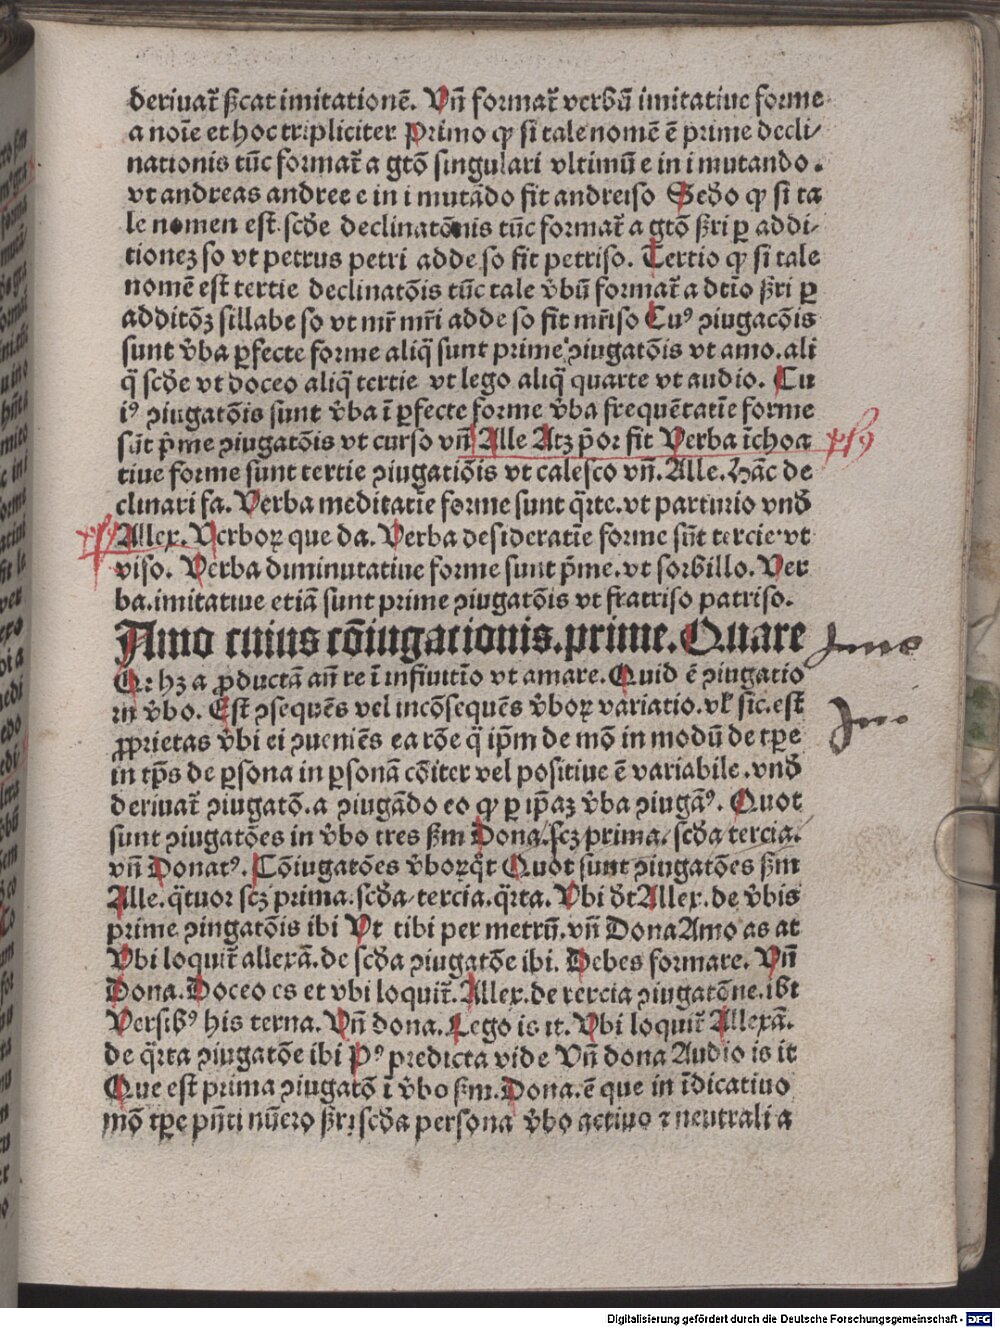 deriuat᷑ ẜcat imitationē. Vn̄ format᷑ verbū imitatiue forme
a noīe et hoc tripliciter Primo ꝙ si tale nomē ē prime decli/
nationis tūc format᷑ a gtō singulari vltimū e in i mutando.
vt andreas andree e in i mutādo fit andreiso Scd̄o ꝙ si ta
le nomen est scd̄e declinatōnis tūc format᷑ a gtō ẜri ꝑ addi-
tionez so vt petrus petri adde so fit petriso. Tertio ꝙ si tale
nomē est tertie declinatōis tūc tale v̄bū format᷑ a dtīo ẜri ꝑ
additōꝫ sillabe so vt mr̄ mr̄i adde so fit mr̄iso Cuꝰ ꝯiugacōis
sunt v̄ba ꝑfecte forme aliq̄ sunt prime ꝯiugatōis vt amo. ali
q̄ scd̄e vt doceo aliq̄ tertie vt lego aliq̄ quarte vt audio. Cu
iꝰ ꝯiugatōis sunt v̄ba ī ꝑfecte forme v̄ba frequētatīe forme
sūt p̄me ꝯiugatōis vt curso vn̄ Alle Atꝫ p̄or fit Verba īchoa
tiue forme sunt tertie ꝯiugatiōis vt calesco vn̄. Alle. Hāc de
clinari fa. Verba meditatīe forme sunt q̄rte. vt parturio vnð
Allex. Verboꝝ que da. Verba desideratīe forme sūt tercie vt
viso. Verba diminutatiue forme sunt p̄me. vt sorbillo. Ver
ba. imitatiue etiā sunt prime ꝯiugatōis vt fratriso patriso.
Amo cuius cōiugationis. prime. Quare
Qꝛ hꝫ a ꝓductā an̄ re ī infiuitīo vt amare. Quid ē ꝯiugatio
in v̄bo. Est ꝯsequēs vel incōsequēs v̄boꝝ variatio. vl̓ sic. est
ꝓprietas v̄bi ei ꝯueniēs ea rōe q̄ ip̄m de mō in modū de tꝑe
in tp̄s de ꝑsona in ꝑsonā cōiter vel positiue ē variabile. vnð
deriuat᷑ ꝯiugatō. a ꝯiugādo eo ꝙ ꝑ ip̄aꝫ v̄ba ꝯiugāꝰ. Quot
sunt ꝯiugatōes in v̄bo tres ẜm Dona. scꝫ prima. scd̄a tercia.
vn̄ Donatꝰ. Cōiugatōes v̄boꝝ q̄t Quot sunt ꝯiugatōes ẜm
Alle. q̄tuor scꝫ prima. scd̄a. tercia. q̄rta. Vbi ðt Allex. de v̄bis
prime ꝯiugatōis ibi Vt tibi per metrū. vn̄ Dona Amo as at
Vbi loquit᷑ allexā. de scd̄a ꝯiugatōe ibi. Debes formare. Vn̄
Dona. Doceo es et vbi loquit᷑. Allex. de tercia ꝯiugatōne. ibi
Versibꝰ his terna. Vn̄ dona. Lego is it. Vbi loquit᷑ Allexā.
de q̄rta ꝯiugatōe ibi Pꝰ predicta vide Vn̄ dona Audio is it
Que est prima ꝯiugatō ī v̄bo ẜm. Dona. ē que in īdicatiuo
mō tꝑe pn̄ti nūero ẜri scd̄a persona v̄bo actiuo ⁊ neutrali a
Digitalisierung gefördert durch die Deutsche Forschungsgemeinschaft - DFG